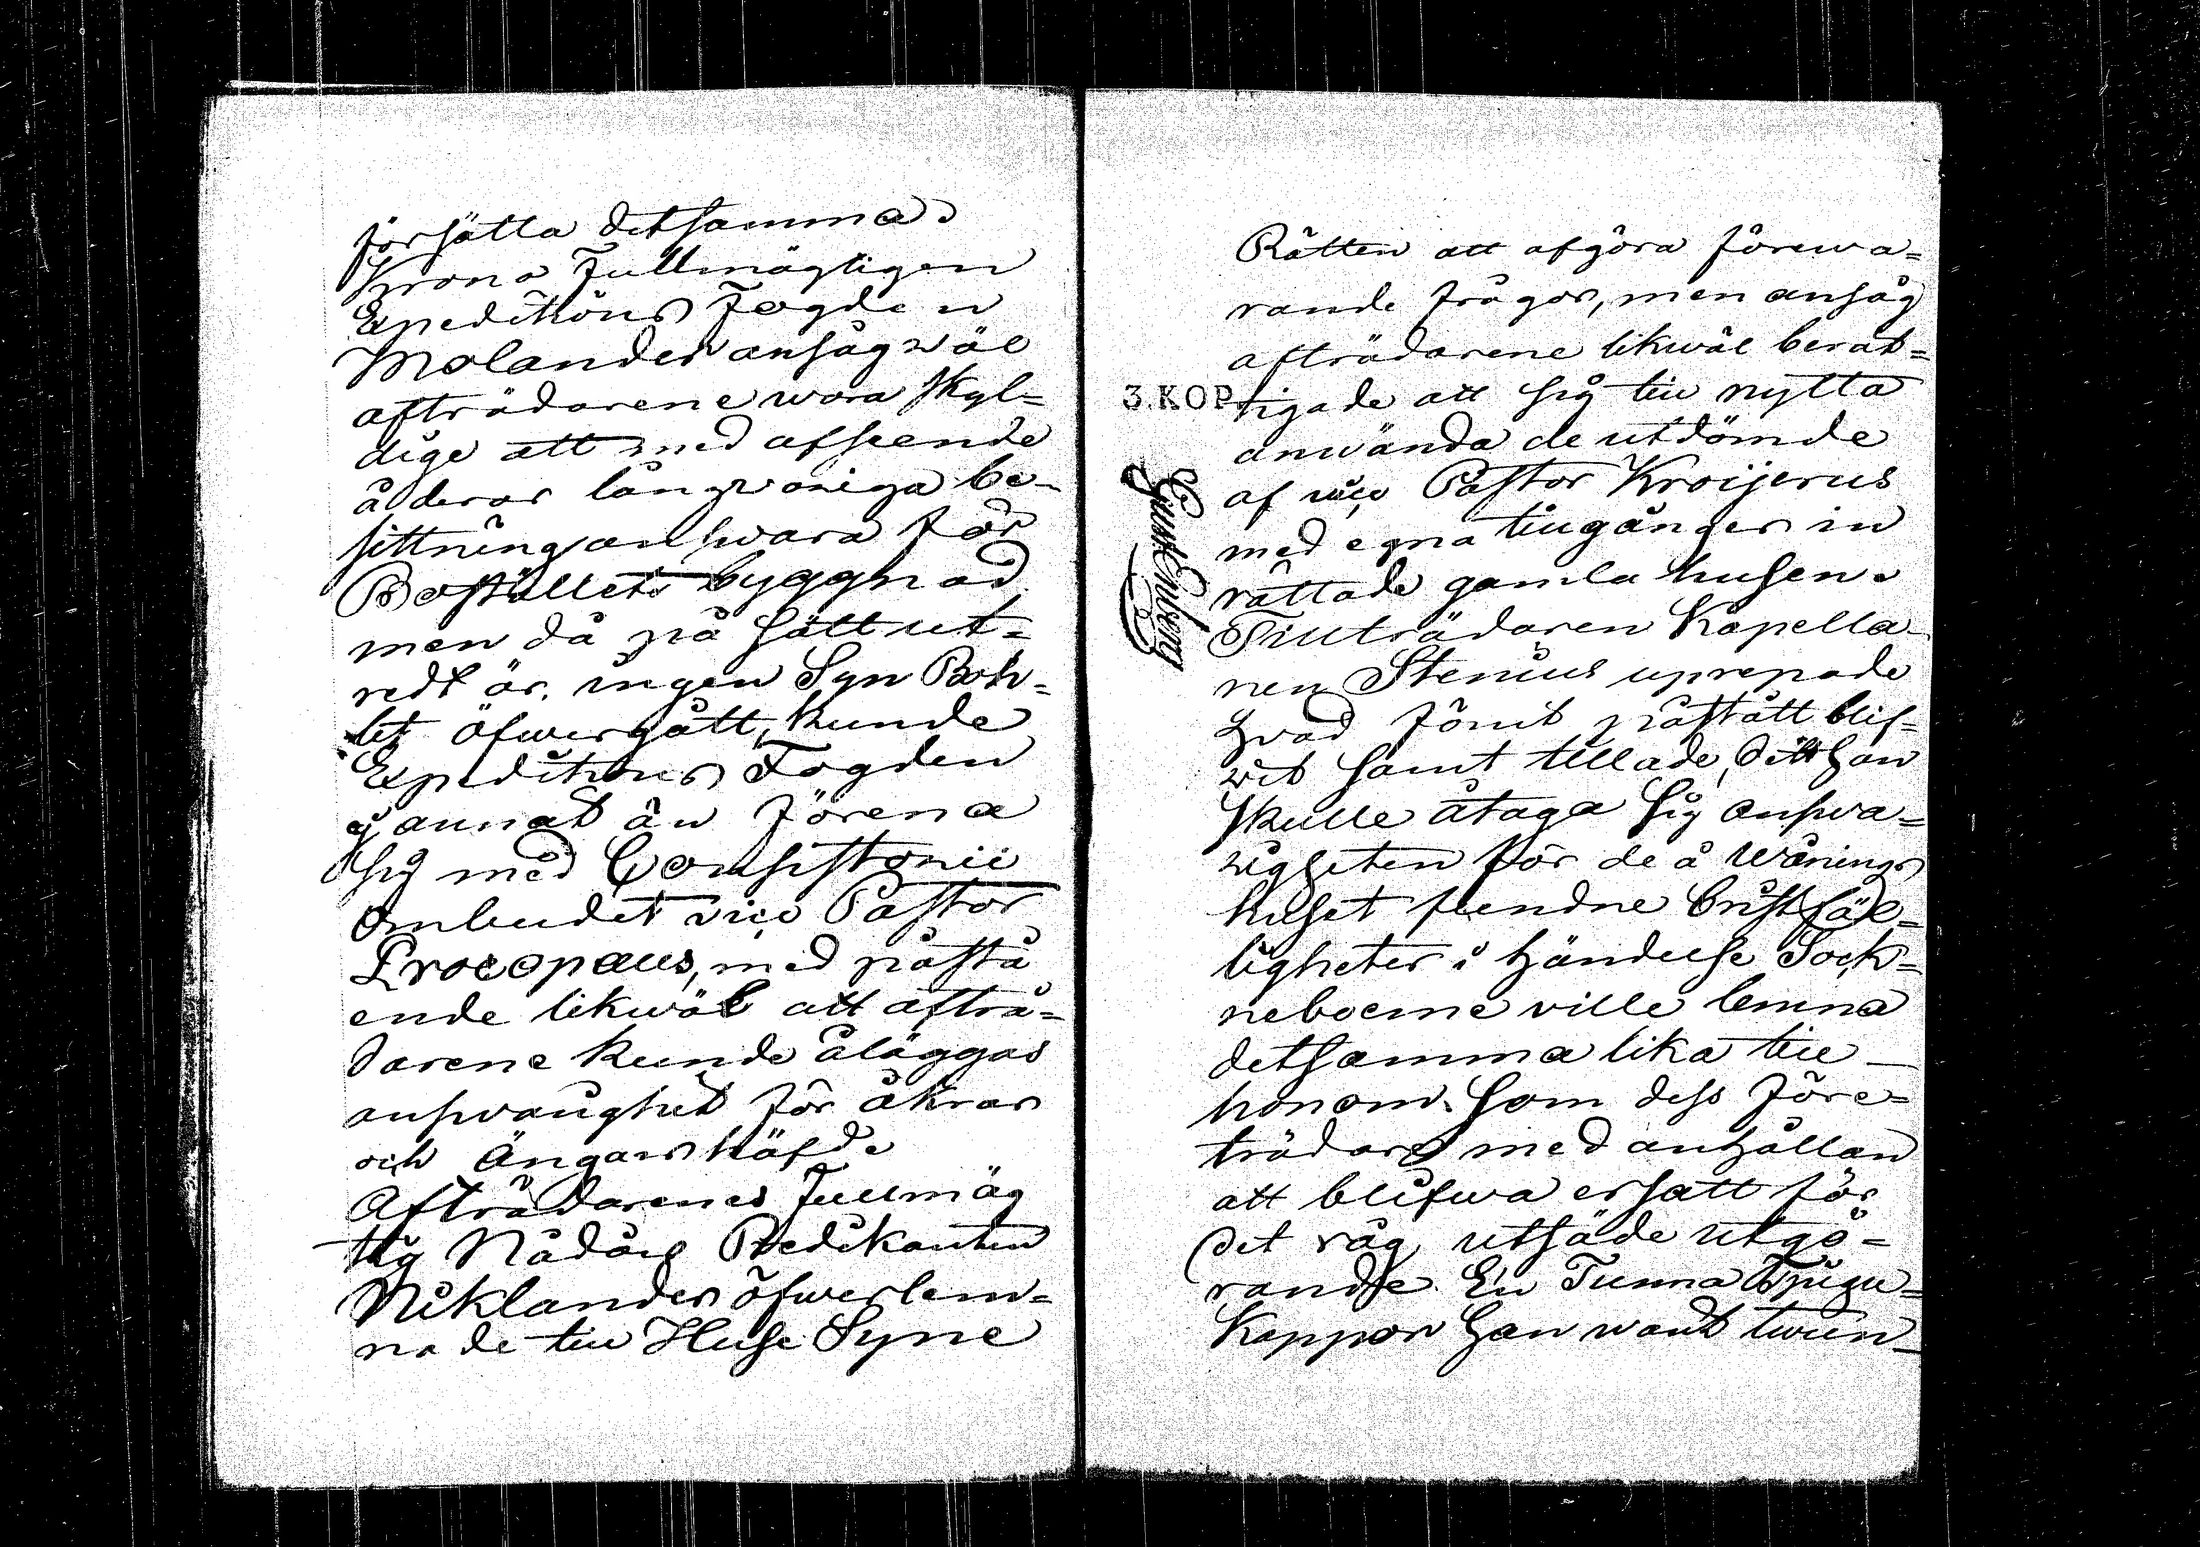 försätta detsamma.
Krono Fullmägtigen
Expeditions Fogden
Molander ansåg wäl
afträdarene wara skyl=
dige att med afseende
å deras långwariga be-
sittning answara för
Boställets byggnad
men då på sätt ut=
redt är, ingen Syn Boh=
let öfwergått, kunde
Expeditions Fogden
ej annat än förena
sig med Consistorii
Ombudet vice Pastor
Procopæus, med påstå
ende likwäl att afträ=
darene kunde åläggas
answarighet för åkrar
och Ängars häfde
Afträdarenes Fullmäg
tig Nådårs Predikanten
Niklander öfwerlem=
nade till Huse Syne
Rätten att afgöra förewa=
rande frågor, men ansåg
afträdarene likwäl berät=
tigade att sig till nytta
anwända de utdömde
af vice Pastor Kroijerus
med egna tillgångar in
rättade gamla husen.
Tillträdaren Kapella-
nen Stenius uprepade
hvad förut påstått blif=
wit samt tillade, att han
skulle åtaga sig answa=
righeten för de å Wånings
huset fundne bristfäl=
ligheter i händelse Sock=
neboerne ville lemna
detsamma lika till
honom som dess före=
trädare med anhållan
att blifwa ersatt för
det råg utsäde utgö=
rande En Tunna Tjugu=
Kappar han warit twun-
3.KOP